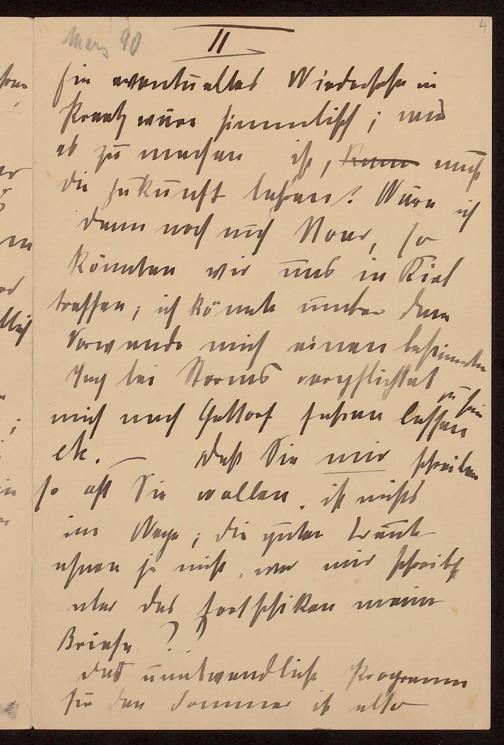 4
März 90
II
Ein eventuelles Wiedersehn in
wäre himmlisch; wie
es zu machen ist, kann muß
die Zukunft lehren! Wäre ich
dann noch nicht so
könnten wir uns in Kiel
treffen; ich könnte unter dem
Vorwande mich einen bestimmten
Tag bei Storms verpflichtet
zu sein
mich nach Gettorf fahren lassen
etc. — Daß Sie mir schreiben
so oft Sie wollen, ist nichts
im Wege; die guten Leute
ahnen ja nicht, wer mir schreibt
aber das Fortschicken meiner
Briefe ??
Das unabwendliche Programm
für den Sommer ist also